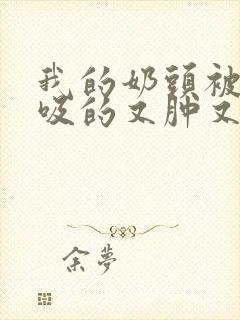 我的奶頭被
吸的又肿又
余夢